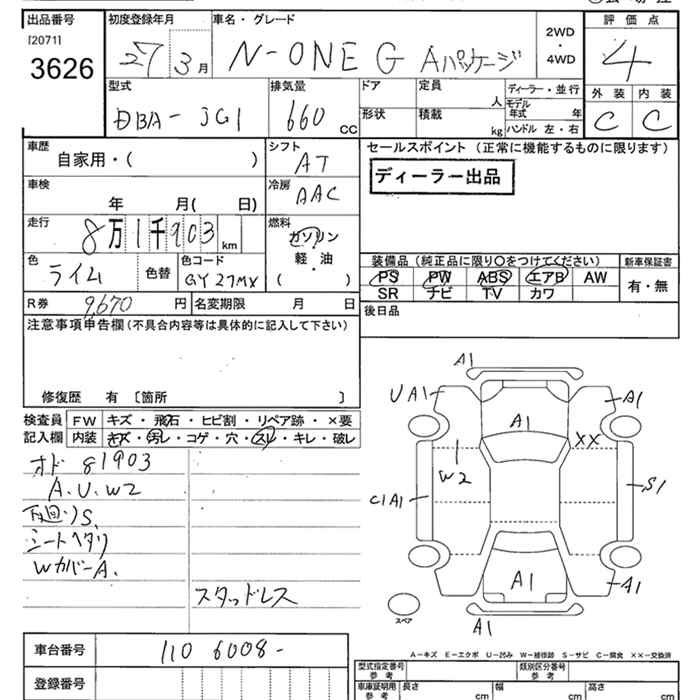 出品番号 初度登録年月 車名・グレード 評価点
[2071]
3626
27 3月 N-ONE G Aパッケージ 2WD・4WD 4
型式 排気量 ドア 定員 人 ディーラー・並行 外装 内装
DBA-JG1 660cc 形状 積載 kg モデル年式 年 ハンドル 左・右 C C
車歴 自家用・( ) シフト AT
セールスポイント(正常に機能するものに限ります)
ディーラー出品
車検 年 月( 日) 冷房 AAC
走行 8万1千903km 燃料 ガソリン・軽油 ( )
色 ライム 色替 色コード GY27MX
装備品(純正品に限り〇をつけてください) 新車保証書
PS PW ABS エアB AW 有・無
SR ナビ TV カワ
R券 9,670円 名変期限 月 日
後日品
注意事項申告欄(不具合内容等は具体的に記入して下さい)
修復歴 有 〔箇所 〕
検査員記入欄
FW キズ・飛石・ヒビ割・リペア跡・×要
内装 キズ・汚レ・コゲ・穴・スレ・キレ・破レ
オド 81903
A.U.W2
下廻りS.
シートヘタリ
WカバーA.
スタッドレス
A1
UA1 A1
A1 XX
W2
C1A1 S1
A1 A1
スペア
A1
A-キズ E-エクボ U-凹み W-補修跡 S-サビ C-腐食 ××-交換済
車台番号 110 6008-
登録番号
型式指定番号 参考 類別区分番号 参考
車庫証明用 参考 長さ cm 幅 cm 高さ cm